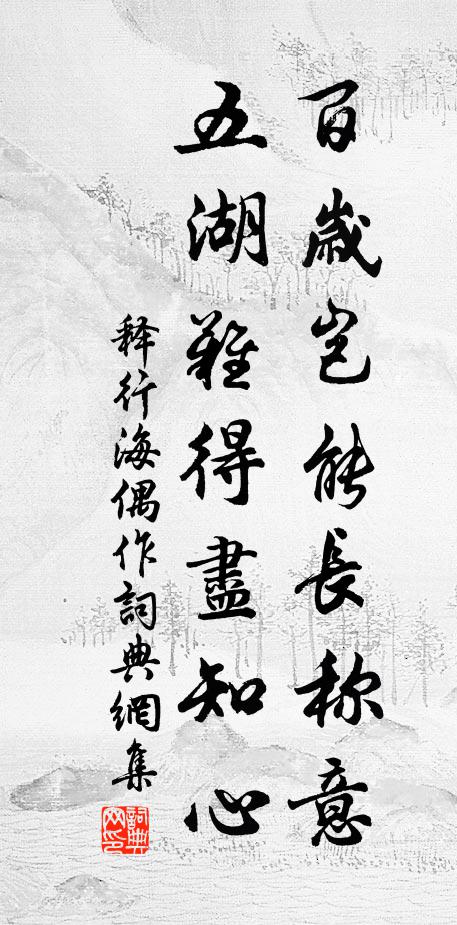 百歲豈能長称意
五湖難得盡知心
释行海偶作詞典網集
詞典網印